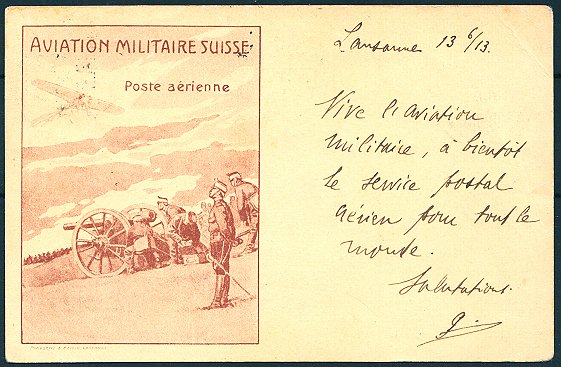 AVIATION MILITAIRE SUISSE
Poste aérienne
Lausanne 13 6/13.
Vive l'aviation
militaire, à bientôt
le service postal
aérien pour tout le
monde.
Salutations.